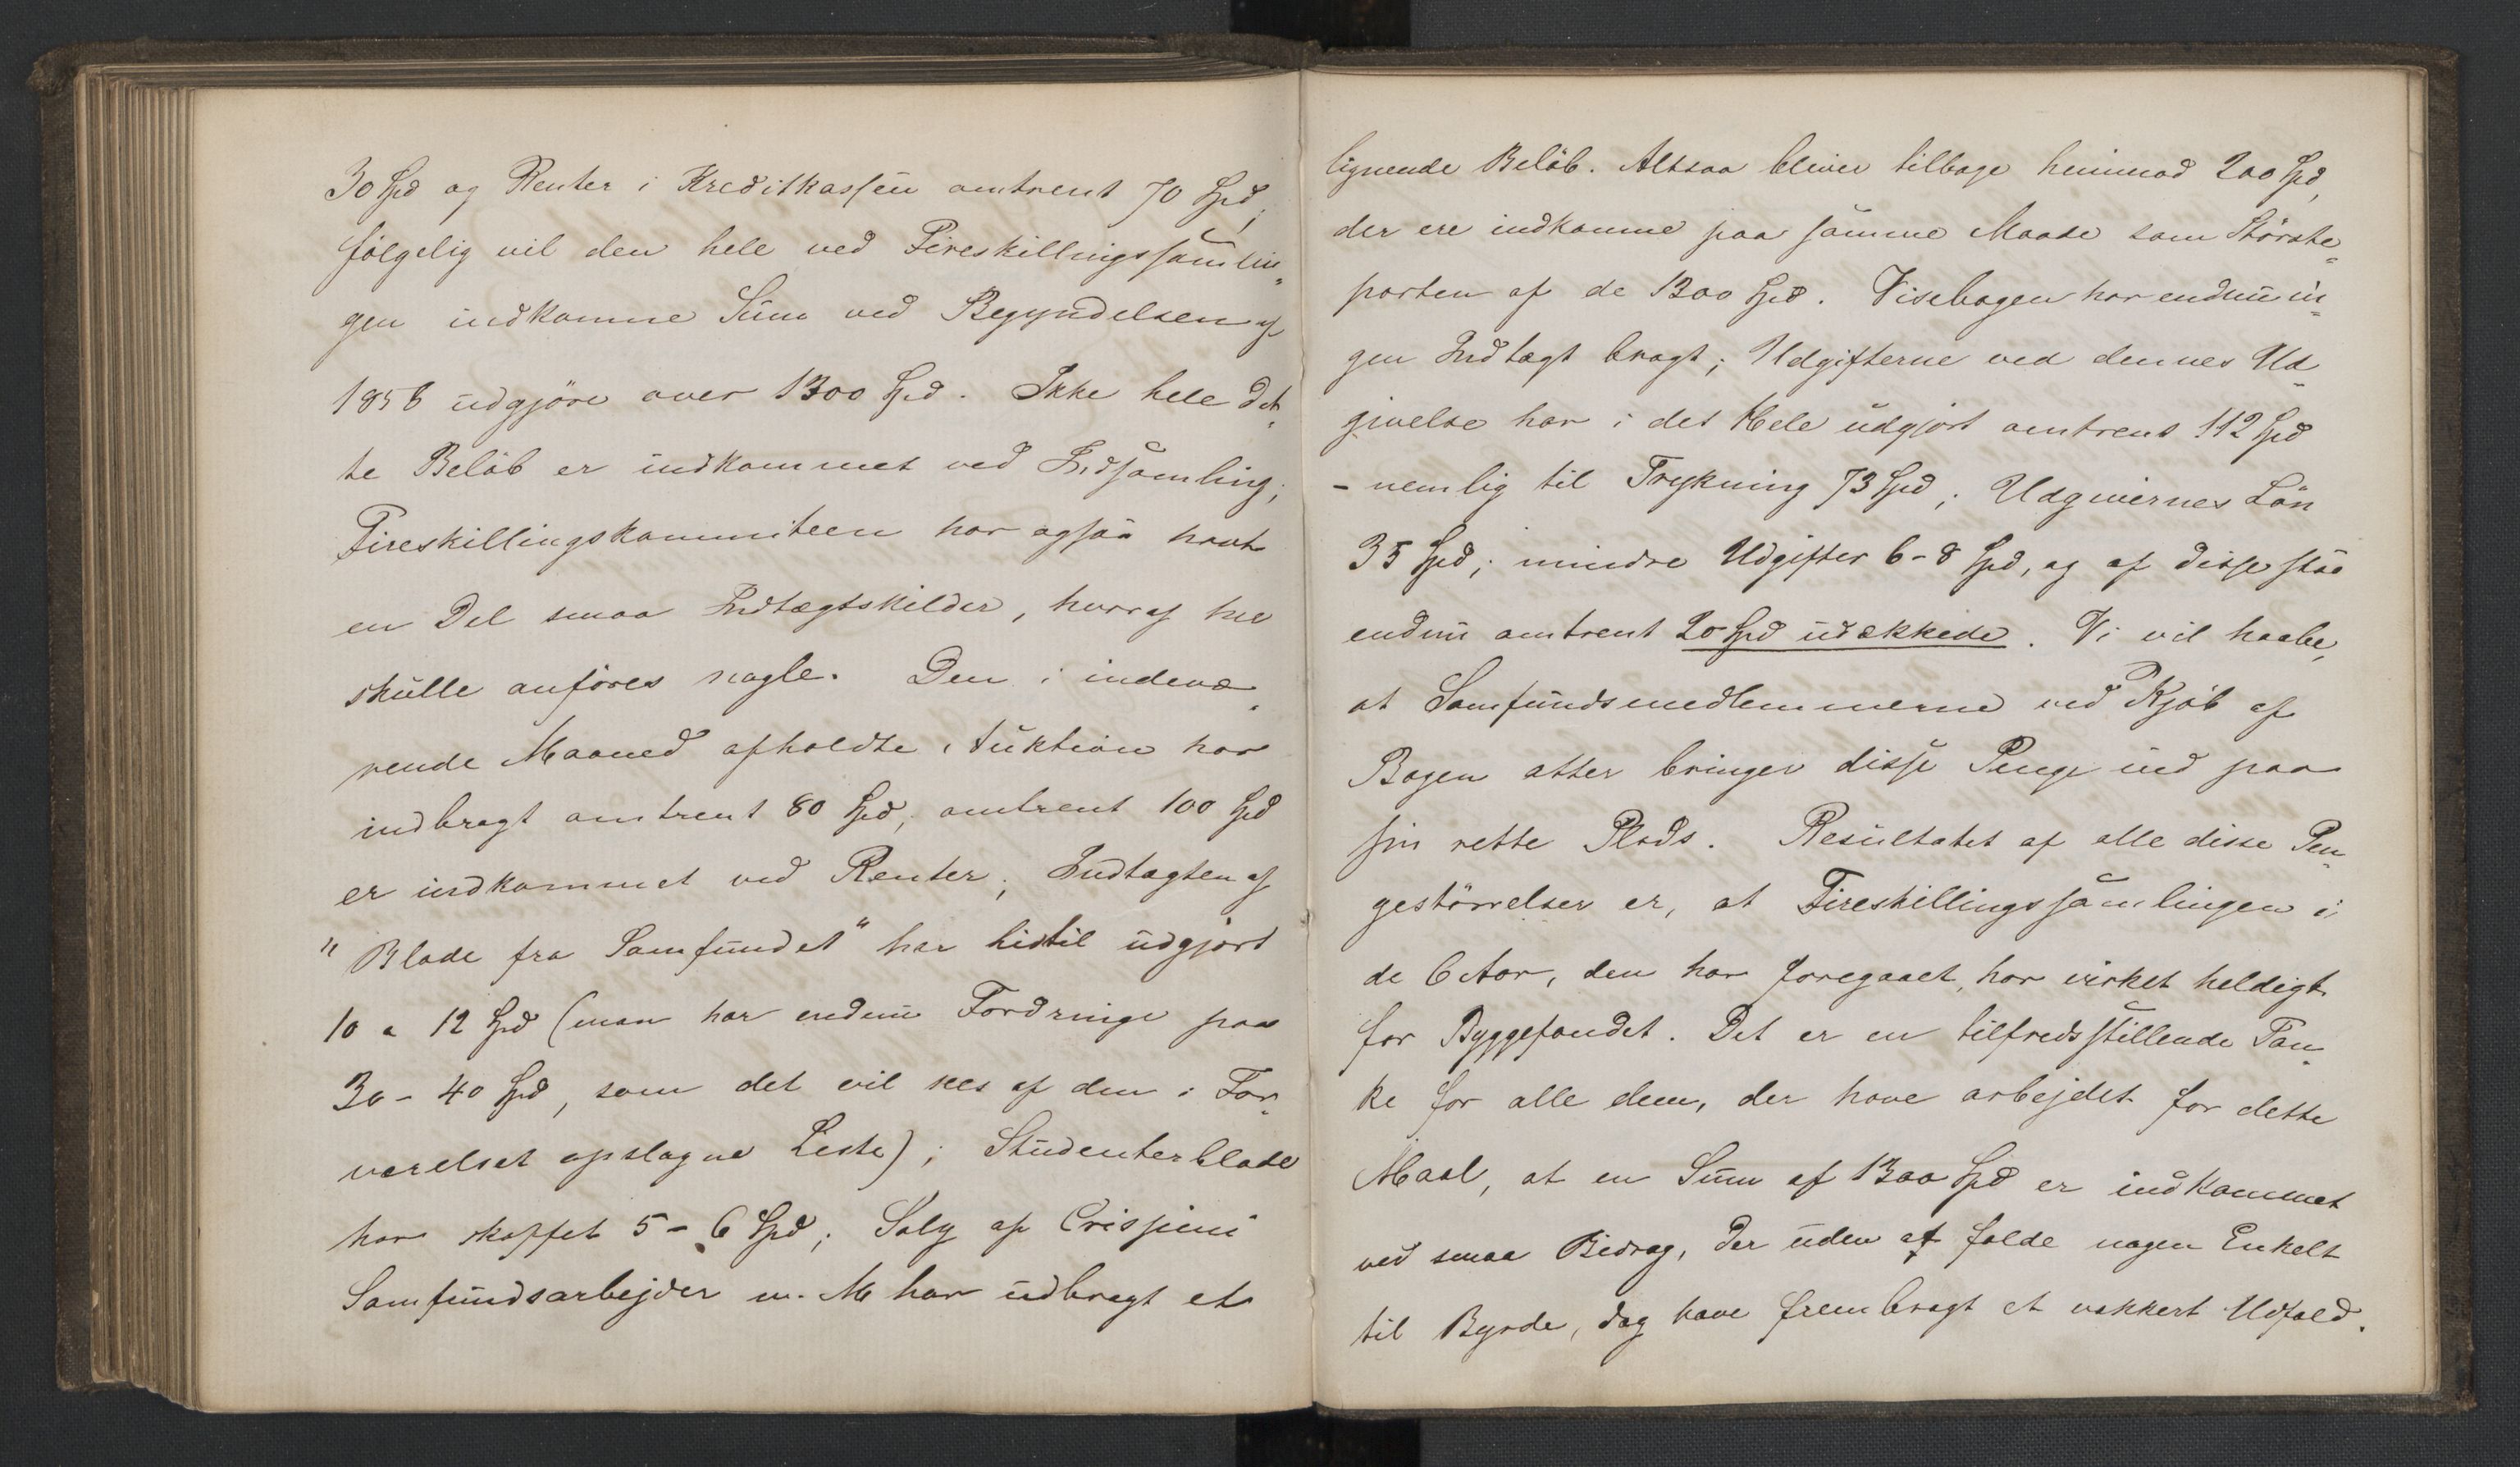 30 Spd og Renter i Kreditkassen omtrent 70 Spd;
følgelig vil den hele ved Fireskillingssamlin-
gen indkomne Sum ved Begyndelsen af
1856 udgjøre over 1300 Spd. Ikke hele det-
te Beløb er indkommet ved Indsamling;
Fireskillingskommiteen har ogsaa havt
en Del smaa Indtægtskilder, hvoraf her
skulle anføres nogle. Den i indevæ-
rende Maaned afholdte Auktion har
indbragt omtrent 80 Spd, omtrent 100 Spd
er indkommet ved Renter; Indtægten af
"Blade fra Samfundet" har hidtil udgjort
10 a 12 Spd (man har endnu Fordringe paa
30-40 Spd, som det vil sees af den i For-
værelset opslagne Liste); Studenterblade
har skaffet 5-6 Spd; Salg af Crispini
Samfundsarbejder m. M har udbragt et
lignende Beløb. Altsaa bliver tilbage henimod 200 Spd,
der ere indkomne paa samme Maade som Største-
parten af de 1300 Spd. Visebogen har endnu in-
gen Indtægt bragt; Udgifterne ved dennes Ud-
givelse har i det Hele udgjort omtrent 112 Spd
- nemlig til Trykning 73 Spd; Udgivernes Løn
35 Spd; mindre Udgifter 6-8 Spd, og af disse staa
endnu omtrent 20 Spd udækkede. Vi vil haabe,
at Samfundsmedlemmerne ved Kjøb af
Bogen atter bringer disse Penge ind paa
sin rette Plads. Resultatet af alle disse Pen-
gestørrelser er, at Fireskillingssamlingen i
de 6 Aar, den har foregaaet, har virket heldigt
for Byggefondet. Det er en tilfredsstillende Tan-
ke for alle dem, der have arbejdet for dette
Maal, at en Sum af 1300 Spd er indkommet
ved smaa Bidrag, der uden at falde nogen Enkelt
til Byrde, dog have frembragt et vakkert Udfald.